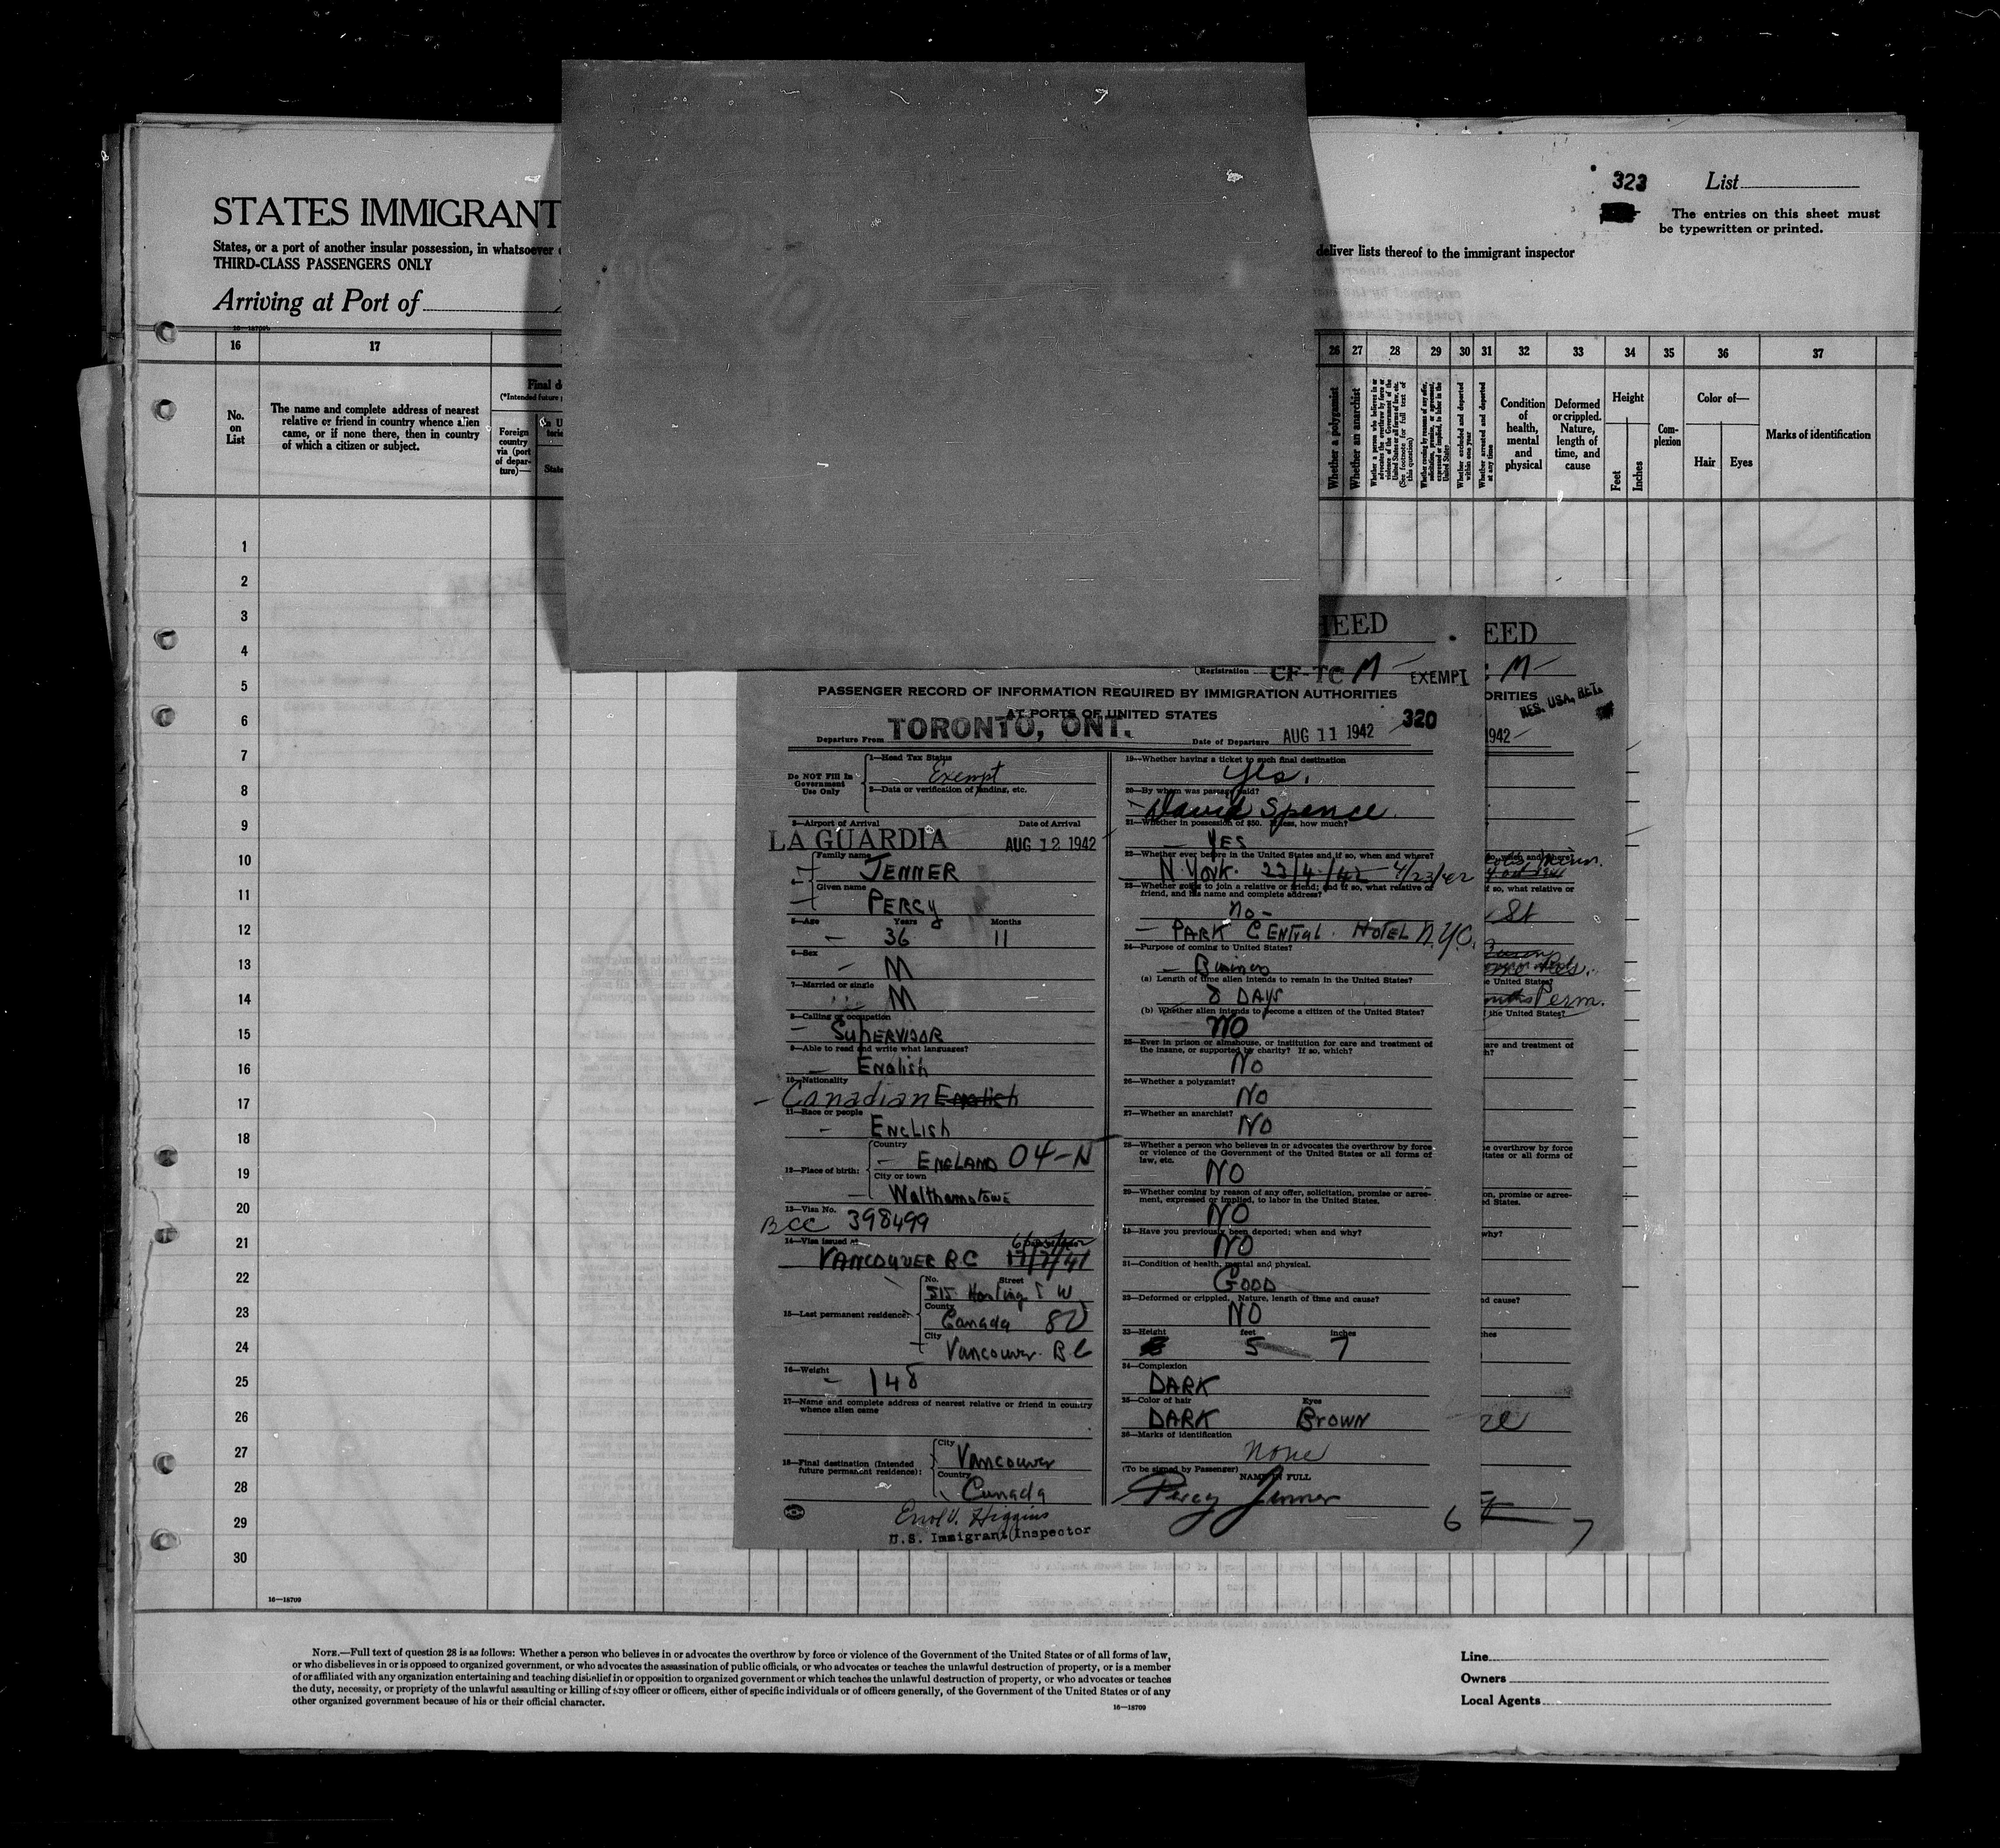 323 List
The entries on this sheet must
be typewritten or printed.
STATES IMMIGRANT
States, or a port of another insular possession, in whatsoever
deliver lists thereof to the immigrant inspector
THIRD-CLASS PASSENGERS ONLY
Arriving at Port of
16 17 26 27 28 29 30 31 32 33 34 35 36 37
No.
on
List
The name and complete address of nearest
relative or friend in country whence alien
came, or if none there, then in country
of which a citizen or subject.
Final d
(*Intended future
Foreign
country
via (port
of depar-
ture)—
State
Whether a polygamist
Whether an anarchist
Whether a person who believes in or
advocates the overthrow by force or
violence of the Government of the
United States or all forms of law, etc.
(See footnote for full text of
this question)
Whether coming by reason of any offer,
solicitation, promise, or agreement,
expressed or implied, to labor in the
United States
Whether excluded and deported
within one year
Whether arrested and deported
at any time
Condition
of
health,
mental
and
physical
Deformed
or crippled.
Nature,
length of
time, and
cause
Height
Feet
Inches
Com-
plexion
Color of—
Hair Eyes
Marks of identification
1
2
3
4
5
6
7
8
9
10
11
12
13
14
15
16
17
18
19
20
21
22
23
24
25
26
27
28
29
30
16—18709
HEED
Registration CF-TC M EXEMPT
PASSENGER RECORD OF INFORMATION REQUIRED BY IMMIGRATION AUTHORITIES
AT PORTS OF UNITED STATES
320
Departure From TORONTO, ONT. Date of Departure AUG 11 1942
Do NOT Fill In
Government
Use Only
1—Head Tax Status
Exempt
2—Data or verification of landing, etc.
3—Airport of Arrival Date of Arrival
LA GUARDIA AUG 12 1942
4—
Family name
JENNER
Given name
PERCY
5—Age Years Months
36 11
6—Sex
M
7—Married or single
M
8—Calling or occupation
SUPERVISOR
9—Able to read and write what languages?
English
10—Nationality
Canadian English
11—Race or people
ENGLISH
12—Place of birth:
Country
ENGLAND 04-N
City or town
Walthamstowe
13—Visa No.
BCC 398499
14—Visa issued at
VANCOUVER B.C 17/7/41
15—Last permanent residence:
No. Street
515 Hastings W
County
Canada 82
City
Vancouver B C
16—Weight
148
17—Name and complete address of nearest relative or friend in country
whence alien came
18—Final destination (Intended
future permanent residence):
City
Vancouver
Country
Canada
Errol V. Higgins
U.S. Immigrant Inspector
19—Whether having a ticket to such final destination
Yes.
20—By whom was passage paid?
David Spence
21—Whether in possession of $50. If less, how much?
YES
22—Whether ever before in the United States and if so, when and where?
N. York. 23/4/42 4/23/42
23—Whether going to join a relative or friend; and if so, what relative or
friend, and his name and complete address?
no-
PARK CENTRAL HOTEL N.Y.C.
24—Purpose of coming to United States?
Business
(a) Length of time alien intends to remain in the United States?
8 DAYS
(b) Whether alien intends to become a citizen of the United States?
NO
25—Ever in prison or almshouse, or institution for care and treatment of
the insane, or supported by charity? If so, which?
No
26—Whether a polygamist?
No
27—Whether an anarchist?
No
28—Whether a person who believes in or advocates the overthrow by force
or violence of the Government of the United States or all forms of
law, etc.
NO
29—Whether coming by reason of any offer, solicitation, promise or agree-
ment, expressed or implied, to labor in the United States.
NO
30—Have you previously been deported; when and why?
NO
31—Condition of health, mental and physical.
GOOD
32—Deformed or crippled. Nature, length of time and cause?
NO
33—Height feet inches
5 7
34—Complexion
DARK
35—Color of hair Eyes
DARK BROWN
36—Marks of identification
none
(To be signed by Passenger) NAME IN FULL
Percy Jenner
6
EED
M
ORITIES
RES. USA, RET.
1942
so, what relative or
St
e United States?
Perm.
f the United States?
care and treatment of
h?
e overthrow by force
tates or all forms of
on, promise or agree-
ed States.
why?
nd cause?
ches
7
NOTE.—Full text of question 28 is as follows: Whether a person who believes in or advocates the overthrow by force or violence of the Government of the United States or of all forms of law,
or who disbelieves in or is opposed to organized government, or who advocates the assassination of public officials, or who advocates or teaches the unlawful destruction of property, or is a member
of or affiliated with any organization entertaining and teaching disbelief in or opposition to organized government or which teaches the unlawful destruction of property, or who advocates or teaches
the duty, necessity, or propriety of the unlawful assaulting or killing of any officer or officers, either of specific individuals or of officers generally, of the Government of the United States or of any
other organized government because of his or their official character.
16—18709
Line
Owners
Local Agents